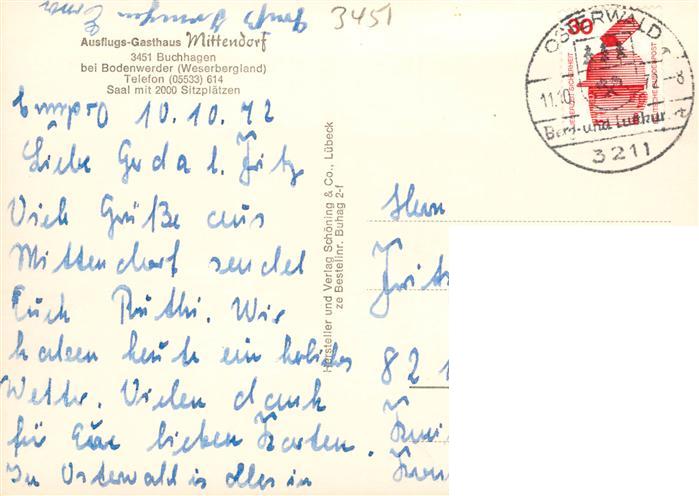 3451
Ausflugs-Gasthaus Mittendorf
3451 Buchhagen
bei Bodenwerder (Weserbergland)
Telefon (05533) 614
Saal mit 2000 Sitzplätzen
10.10.72
Liebe Gerda u. Fritz
Viele Grüße aus
Mittendorf sendet
Euch Ruthi. Wir
haben heute ein herliches
Wetter. Vielen dank
für Eure lieben Karten.
In Osterwald is alles in
Hersteller und Verlag Schöning & Co., Lübeck
ze Bestellnr. Buhag 2-f
30
DEUTSCHE BUNDESPOST
OSTERWALD
11.10.72-8
Berg- und Luftkur
3211
Herrn
Fritz
82